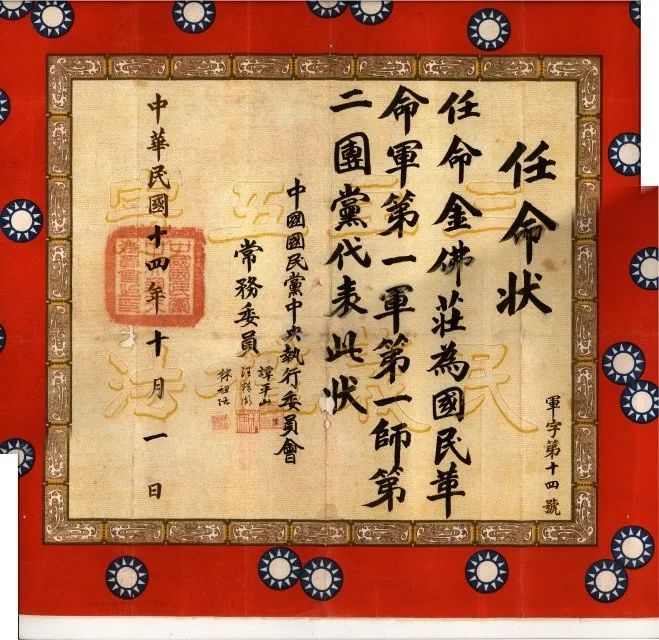 軍字第十四號
任命状
任命金佛莊為國民革
命軍第一軍第一師第
二團黨代表此狀
中國國民黨中央執行委員會
常務委員
譚平山
汪精衛
林祖涵
中華民國十四年十月一日